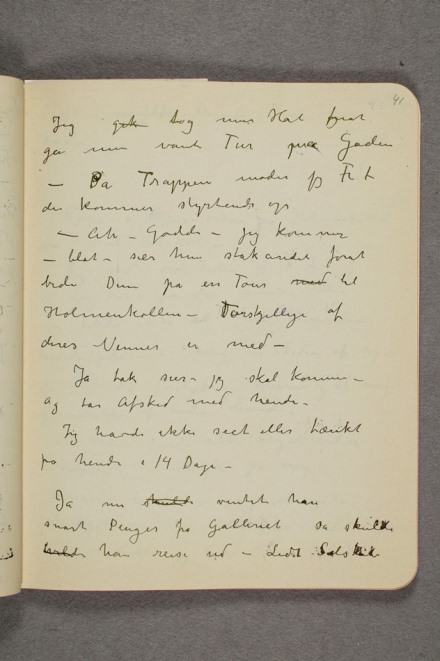 41
Jeg gik tog min Hat forat
gå min vante Tur på Gaden
— På Trappen møder jeg Fr L
der kommer styrtende op
— Ah — Goddag — Jeg kommer
— blot — sier hun stakåndet forat
bede Dem på en Tour med til
Holmenkollen — Forskjellige af
deres Venner er med —
Ja tak sier jeg skal komme —
og tar Afsked med hende.
Jeg havde ikke seet eller tænkt
på hende i 14 Dage —
Ja nu skulde ventet han
snart Penger fra Galleriet så skulde
han reise ud — Lidt Selskab